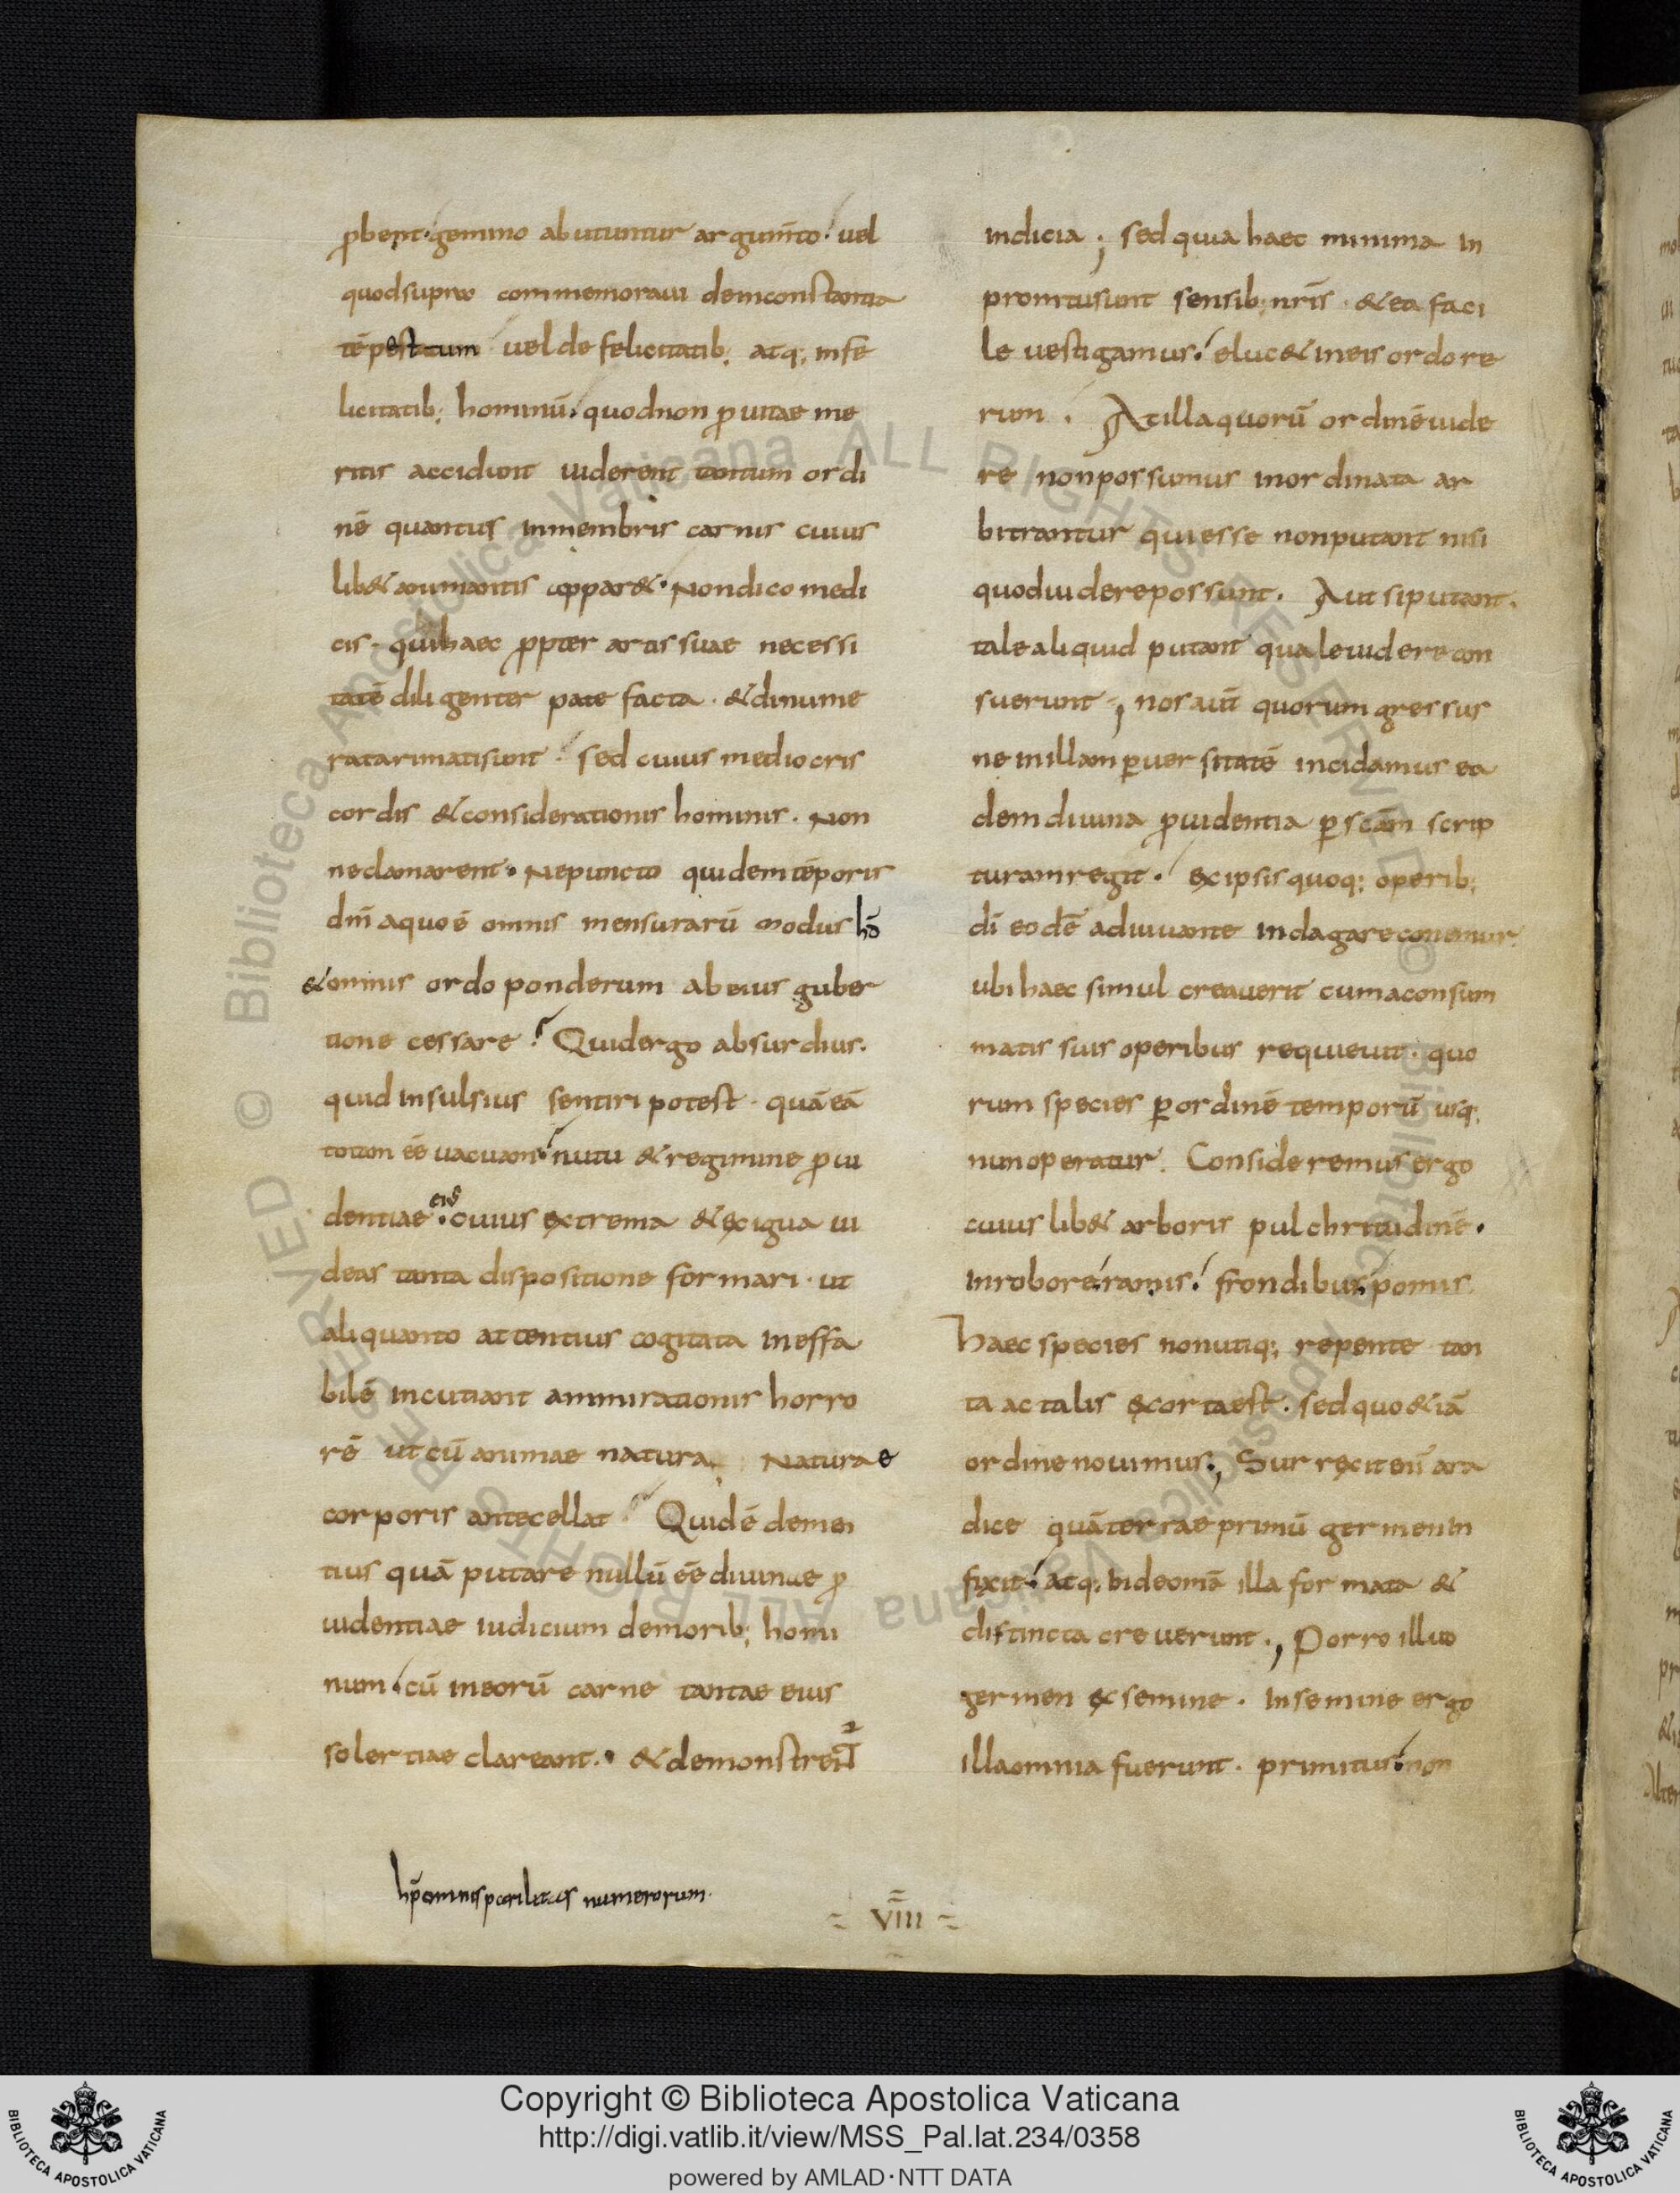 ꝓbent·gemino abutuntur argum̄to· uel
quodsupra commemoraui deinconstantia
tēpestatum uel de felicitatib; atq; infe
licitatib; hominū· quodnon ꝓ uitae me
ritis accidunt uiderent tantum ordi
nē quantus inmembris carnis cuius
lib& animantis appar&· Non dico medi
cis· quihaec ꝓpter artis suae necessi
tatē diligenter patefacta· &dinume
ratarimatisunt· sed cuius mediocris
cordis &considerationis hominis· Non
neclamarent· Nepuncto quidem tēporis
dm̄ aquo ē omnis mensurarū modus hō
&omnis ordo ponderum ab eius guber
tione cessare? Quidergo absurdius·
quid insulsius sentiri potest· quā eā
totam eē uacuam· nutu & regimine ꝓui
dentiae· cuius extrema & exigua ui
deas tanta dispositione formari· ut
aliquanto attentius cogitata ineffa
bilē incutiant ammirationis horro
rē ut cū animae natura Naturae
corporis antecellat Quid ē demen
tius quā putare nullū eē diuinae ꝓ
uidentiae iudicium demorib; homi
num· cū ineorū carne tantae eius
solertiae clareant· &demonstrent
hp̄ omnis parilitas numerorum·
indicia; sed quia haec minima in
promtusunt sensib; nr̄is· & ea faci
le uestigamus· eluc& ineis ordo re
rum· At illa quorū ordinē uide
re non possumus inordinata ar
bitrantur qui esse nonputant nisi
quoduiderepossunt· Aut siputant·
tale aliquid putant quale uidere con
suerunt; nos aut̄ quorum gressus
ne inillam ꝑuersitatē incidamus ea
dem diuina ꝓuidentia ꝑ scām scrip
turam regit· ex ipsis quoq; operib;
dī eodē adiuuante indagare conemur
ubi haec simul creauerit cum a consum
matis suis operibus requieuit· quo
rum species ꝑ ordinē temporū usq;
nunoperatur· Consideremus ergo
cuius lib& arboris pulchritudinē·
inrobore· ramis· frondibus· pomis
haec species nonutiq; repente tan
ta ac talis exorta est· sed quo &iā
ordine nouimus; Surrexit enī a ra
dice quā terrae primū germen in
fixit· atq; inde om̄a illa formata &
distincta creuerunt; Porro illud
germen ex semine· Insemine ergo
illa omnia fuerunt· primitus· non
= VIII =
© Biblioteca Apostolica Vaticana ALL RIGHTS RESERVED
Copyright © Biblioteca Apostolica Vaticana
http://digi.vatlib.it/view/MSS_Pal.lat.234/0358
powered by AMLAD·NTT DATA
BIBLIOTECA APOSTOLICA VATICANA
BIBLIOTECA APOSTOLICA VATICANA